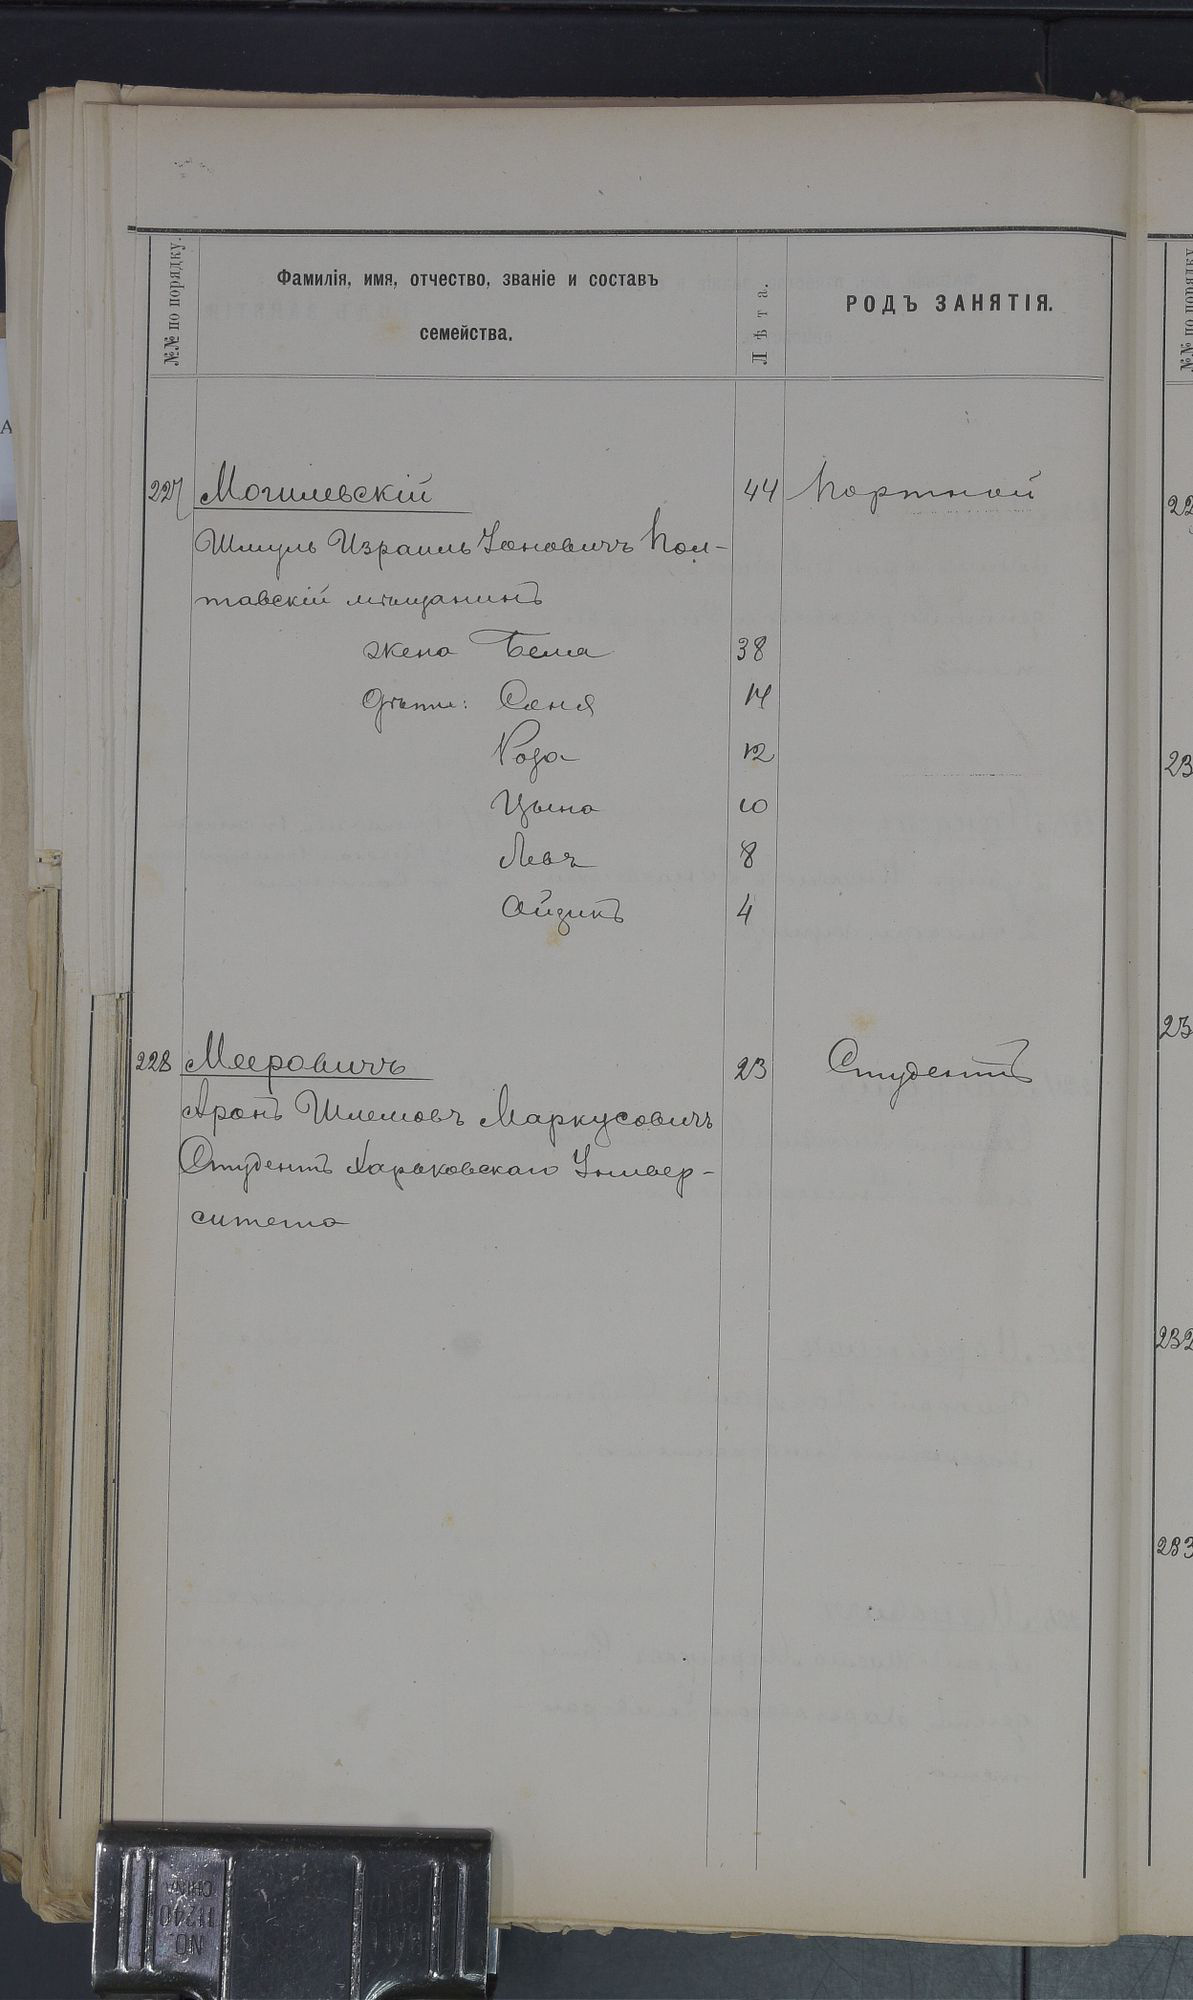 №№ по порядку.
Фамилія, имя, отчество, званіе и составъ
семейства.
Лѣта.
РОДЪ ЗАНЯТІЯ.
№№ по порядку
227 Могилевскій 44 Портной
Шмуль Израиль Іоновичъ Пол-
тавскій мѣщанинъ
жена Бела 38
дѣти: Соня 14
Роза 12
Цына 10
Левъ 8
Айзикъ 4
228 Мееровичъ 23 Студентъ
Аронъ Шлемовъ Маркусовичъ
Студентъ Харьковскаго Универ-
ситета
232
233
CHINA
11240
NO.